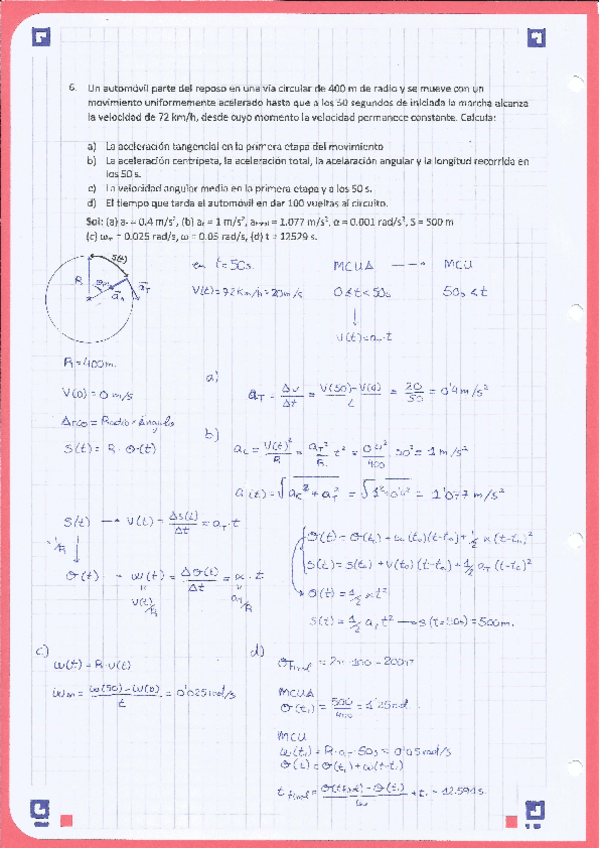 6. Un automóvil parte del reposo en una vía circular de 400 m de radio y se mueve con un
movimiento uniformemente acelerado hasta que a los 50 segundos de iniciada la marcha alcanza
la velocidad de 72 km/h, desde cuyo momento la velocidad permanece constante. Calcula:
a) La aceleración tangencial en la primera etapa del movimiento
b) La aceleración centrípeta, la aceleración total, la aceleración angular y la longitud recorrida en
los 50 s.
c) La velocidad angular media en la primera etapa y a los 50 s.
d) El tiempo que tarda el automóvil en dar 100 vueltas al circuito.
Sol: (a) = 0.4 m/s², (b) = 1 m/s², = 1.077 m/s², α = 0.001 rad/s², S = 500 m
(c) = 0.025 rad/s, ω = 0.05 rad/s, (d) t = 12529 s.
S(t)
R
en t = 50s.
MCUA ---→ MCU
V(t) = 72 km/h = 20 m/s
0 ≤ t < 50s
50s ≤ t
V(t) = a·t
R = 400m.
a)
V(0) = 0 m/s
a_T = Δv/Δt = V(50)-V(0)/t = 20/50 = 0'4 m/s²
Δrco = Radio × Ángulo
b)
S(t) = R·θ(t)
a_c = V(t)²/R = a_T²/R t² = 0'4²/400 · 50² = 1 m/s²
a(t) = √a_c² + a_T² = √1²+0'4² = 1'077 m/s²
S(t) → V(t) = ΔS(t)/Δt = a_T·t
θ(t) → ω(t) = Δθ(t)/Δt = α·t
V(t)/R
S(t) = S(t₀) + V(t₀)(t-t₀) + ½ a_T (t-t₀)²
θ(t) = ½ αt²
S(t) = ½ a_T t² → S(t=50s) = 500m.
c)
d)
ω(t) = R·V(t)
ω_m = ω(50) - ω(0)/t = 0'025 rad/s
θ_final = 2π·100 = 200π
MCUA
θ(t₁) = 500/400 = 1'25 rad.
MCU
θ(t) = θ(t₁) + ω(t-t₁)